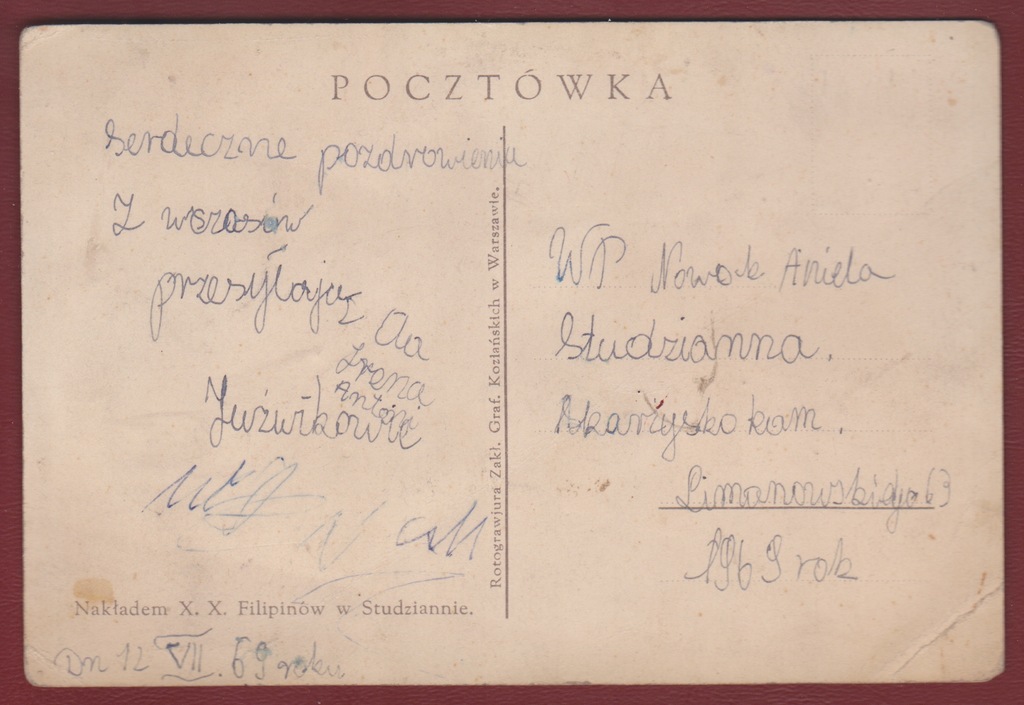 POCZTÓWKA
Serdeczne pozdrowienia
Z wczasów
przesyłają
Irena
Antoni
Juźwikowie
Rotograwjura Zakł. Graf. Koziańskich w Warszawie.
Nakładem X. X. Filipinów w Studziannie.
Dn 12 VII. 69 roku
WP Nowak Aniela
Studzianna.
Skarżysko kam.
Limanowskiego 63
1969 rok